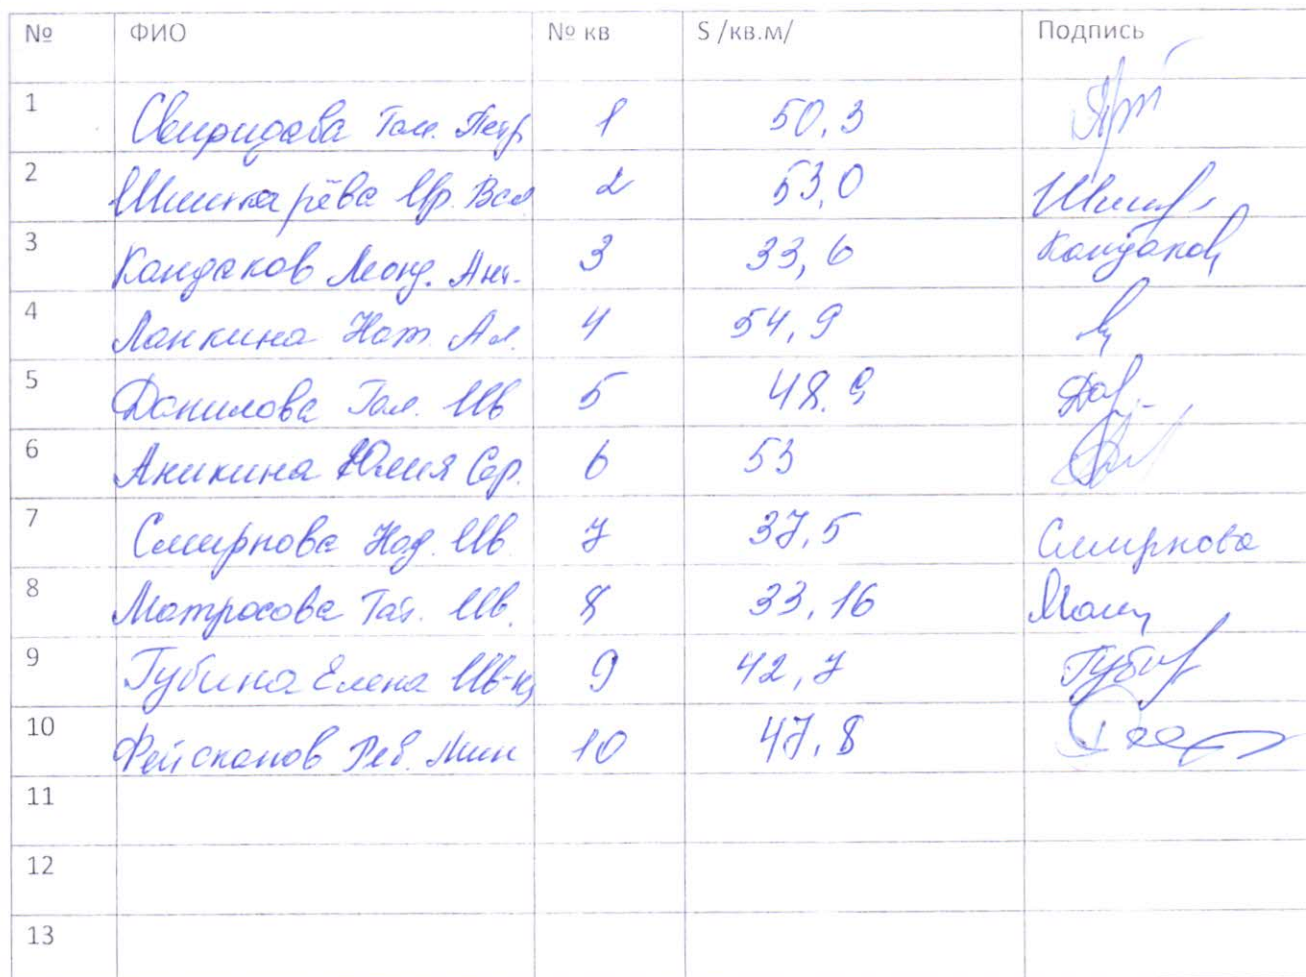 № ФИО № кв S /кв.м/ Подпись
1 Свиридова Гал. Петр 1 50,3
2 Шинкарёва Ир. Вас 2 53,0
3 Кандаков Леонд. Ан. 3 33,6 Кандаков
4 Ланкина Нат. Ал. 4 54,9
5 Данилова Гал. Ив 5 48.9
6 Аникина Юлия Сер. 6 53
7 Смирнова Над. Ив. 7 37,5 Смирнова
8 Матросова Тат. Ив. 8 33,16
9 Губина Елена Ив-на 9 42,7
10 Фейсканов 10 47,8
11
12
13